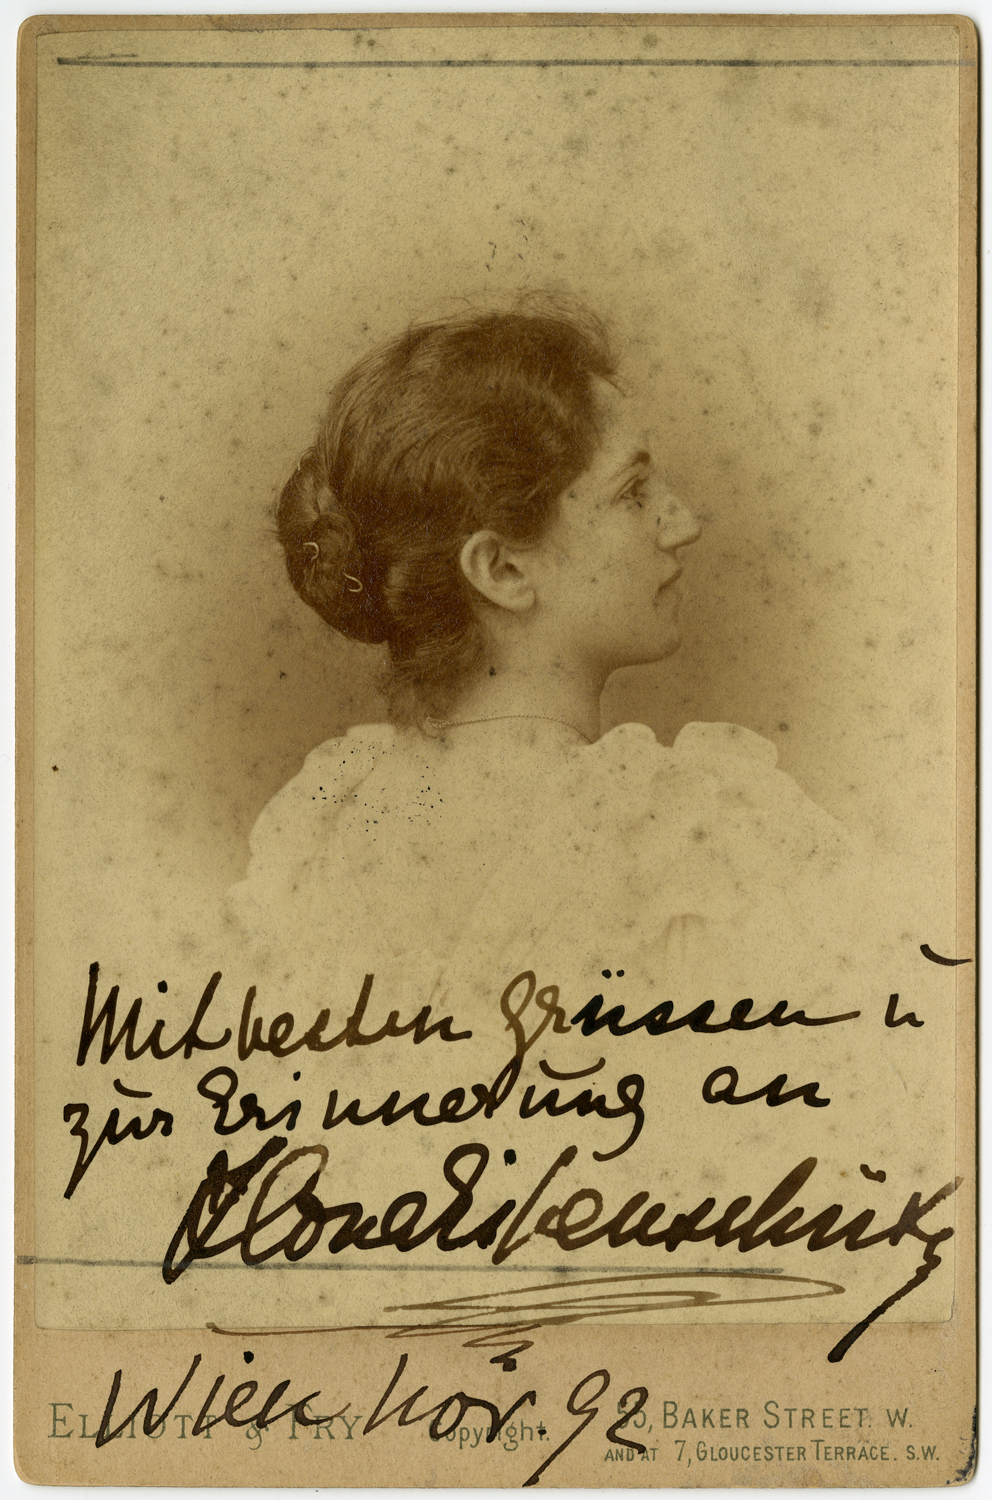 Mit besten Grüssen u
zur Erinnerung an
Ilona Eibenschütz
Wien Nov 92
ELLIOTT & FRY Copyright. 55, BAKER STREET. W.
AND AT 7, GLOUCESTER TERRACE. S.W.